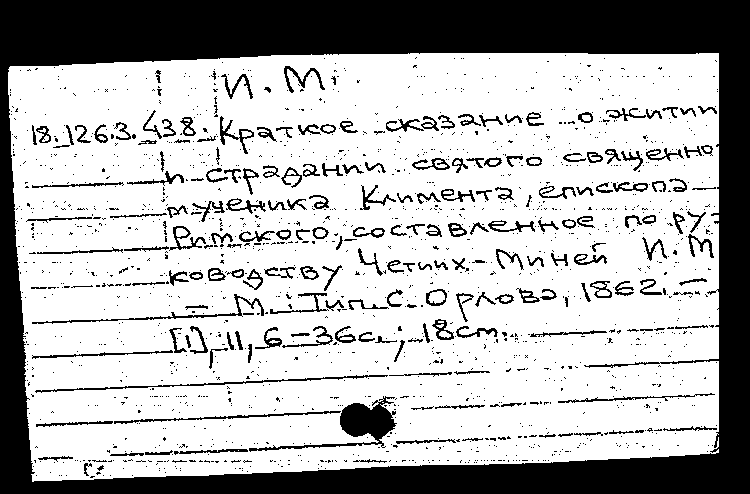 И. М.
18.126.3.438. Краткое сказание о житии
и страдании святого священно-
мученика Климента, епископа
Римского, составленное по ру-
ководству Четиих-Миней И. М
. – М.: Тип. С. Орлова, 1862. –
[1], 11, 6-36с.; 18см.